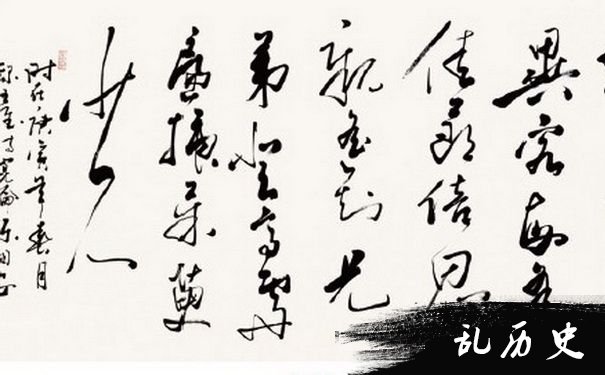 異客每逢
佳節倍思
親遥知兄
弟登高處
遍插茱萸
少一人
时在庚寅年春月
乱历史